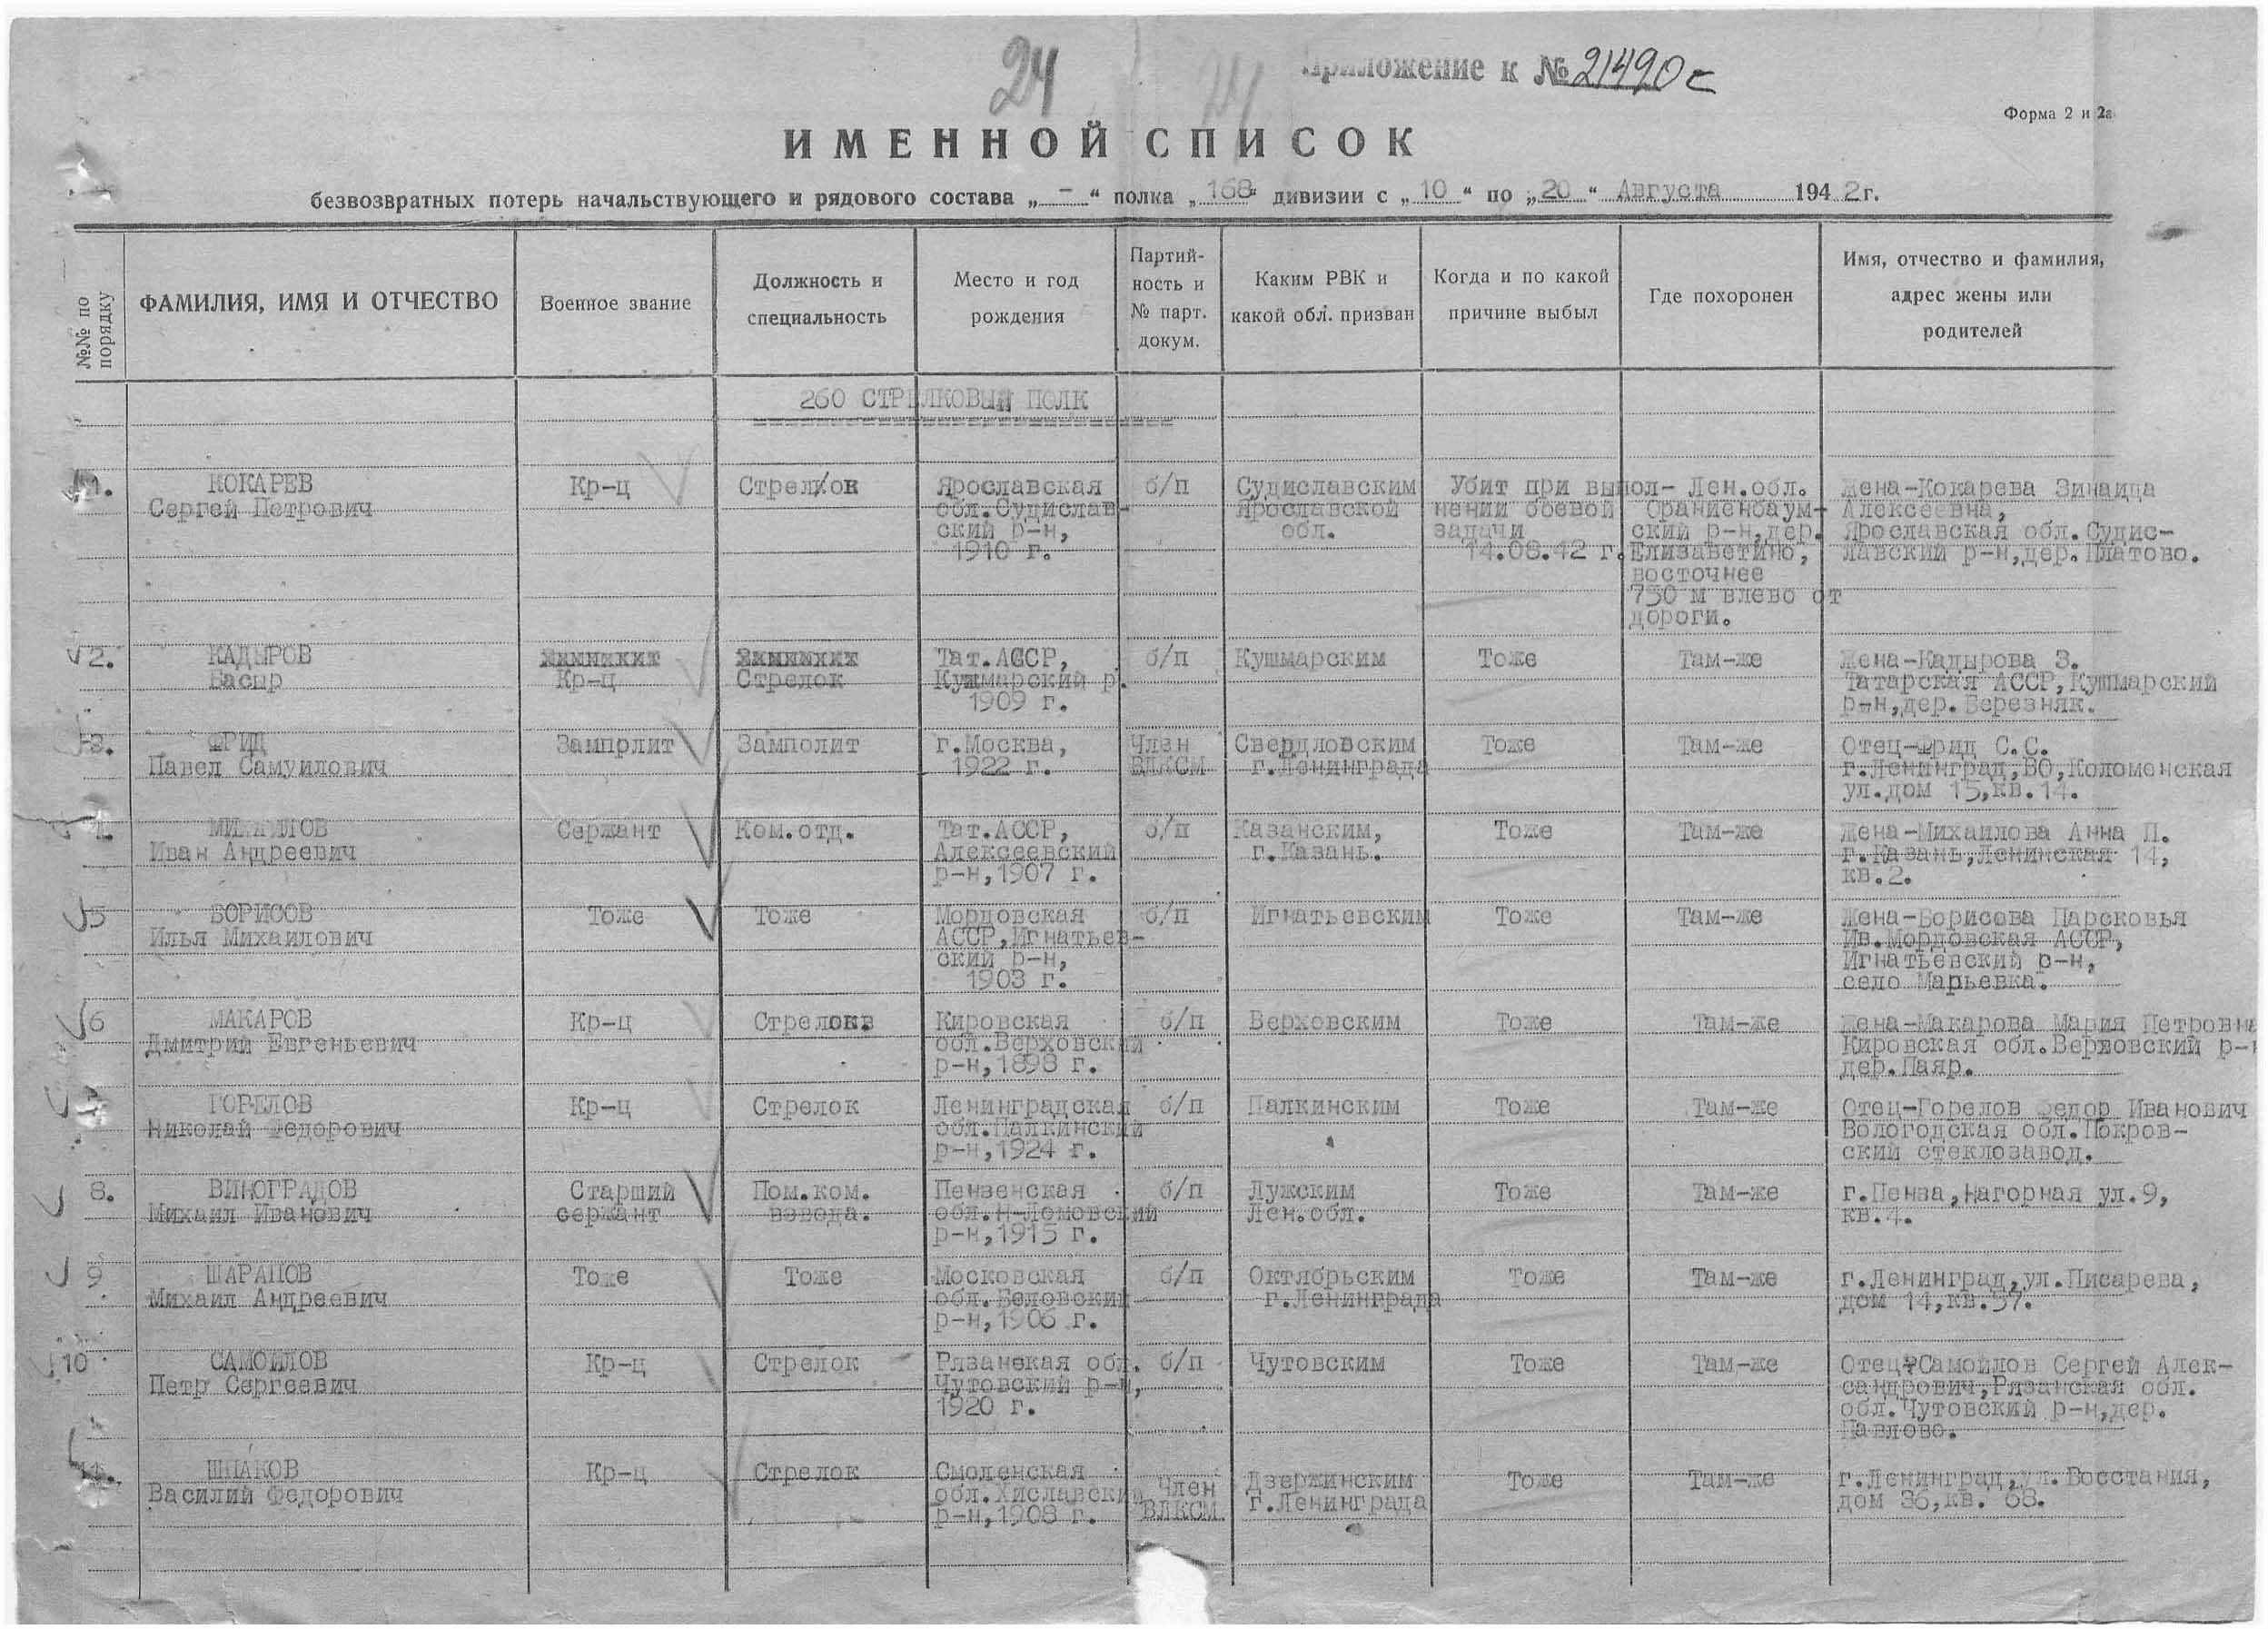 24
Приложение к № 21490с
Форма 2 и 2а
ИМЕННОЙ СПИСОК
безвозвратных потерь начальствующего и рядового состава „ – “ полка „ 168 “ дивизии с „ 10 “ по „ 20 “ Августа 1942 г.
№№ по порядку
ФАМИЛИЯ, ИМЯ И ОТЧЕСТВО
Военное звание
Должность и
специальность
Место и год
рождения
Партий-
ность и
№ парт.
докум.
Каким РВК и
какой обл. призван
Когда и по какой
причине выбыл
Где похоронен
Имя, отчество и фамилия,
адрес жены или
родителей
260 СТРЕЛКОВЫЙ ПОЛК
1.
КОКАРЕВ
Сергей Петрович
Кр-ц
Стрелок
Ярославская
обл.Судислав-
ский р-н,
1910 г.
б/п
Судиславским
Ярославской
обл.
Убит при выпол-
нении боевой
задачи
14.08.42 г.
Лен.обл.
Ораниенбаум-
ский р-н,дер.
Елизаветино,
восточнее
750 м влево от
дороги.
Жена-Кокарева Зинаида
Алексеевна,
Ярославская обл.Судис-
лавский р-н,дер.Платово.
2.
КАДЫРОВ
Васыр
Кр-ц
Стрелок
Тат.АССР,
Кушмарский р.
1909 г.
б/п
Кушмарским
Тоже
Там-же
Жена-Кадырова З.
Татарская АССР,Кушмарский
р-н,дер.Березняк.
3.
ФРИД
Павел Самуилович
Замполит
Замполит
г.Москва,
1922 г.
Член
ВЛКСМ
Свердловским
г.Ленинграда
Тоже
Там-же
Отец-Фрид С.С.
г.Ленинград,ВО,Коломенская
ул.дом 15,кв.14.
4.
Иван Андреевич
Сержант
Ком.отд.
Тат.АССР,
Алексеевский
р-н,1907 г.
б/п
Казанским,
г.Казань.
Тоже
Там-же
Жена-Михаилова Анна П.
г.Казань,Ленинская 14,
кв.2.
5
БОРИСОВ
Илья Михаилович
Тоже
Тоже
Мордовская
АССР,Игнатьев-
ский р-н,
1903 г.
б/п
Игнатьевским
Тоже
Там-же
Жена-Борисова Парсковья
Ив.Мордовская АССР,
Игнатьевский р-н,
село Марьевка.
6
МАКАРОВ
Дмитрий Евгеньевич
Кр-ц
Стрелок
Кировская
обл.Верховский
р-н,1898 г.
б/п
Верховским
Тоже
Там-же
Жена-Макарова Мария Петровна
Кировская обл.Верховский р-н
дер.Паяр.
ГОРЕЛОВ
Николай Федорович
Кр-ц
Стрелок
Ленинградская
обл.Палкинский
р-н,1924 г.
б/п
Палкинским
Тоже
Там-же
Отец-Горелов Федор Иванович
Вологодская обл.Покров-
ский стеклозавод.
8.
ВИНОГРАДОВ
Михаил Иванович
Старший
сержант
Пом.ком.
взвода.
Пензенская
обл.Н-Ломовский
р-н,1915 г.
б/п
Лужским
Лен.обл.
Тоже
Там-же
г.Пенза,Нагорная ул.9,
кв.4.
9
ШАРАПОВ
Михаил Андреевич
Тоже
Тоже
Московская
обл.Беловский
р-н,1906 г.
б/п
Октябрьским
г.Ленинграда
Тоже
Там-же
г.Ленинград,ул.Писарева,
дом 14,кв.37.
10
САМОЙЛОВ
Петр Сергеевич
Кр-ц
Стрелок
Рязанская обл.
Чутовский р-н,
1920 г.
б/п
Чутовским
Тоже
Там-же
Отец-Самойлов Сергей Алек-
сандрович,Рязанская обл.
обл.Чутовский р-н,дер.
Павлово.
11.
ШПАКОВ
Василий Федорович
Кр-ц
Стрелок
Смоленская
обл.Хиславский
р-н,1908 г.
Член
ВЛКСМ.
Дзержинским
г.Ленинграда
Тоже
Там-же
г.Ленинград,ул.Восстания,
дом 36,кв. 68.